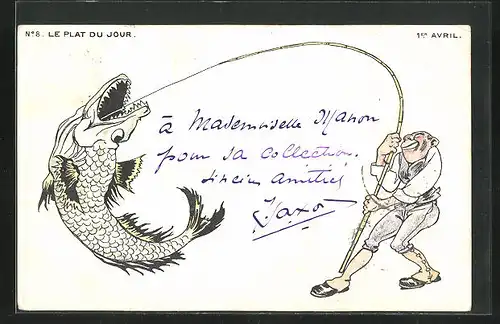 Nº 8. LE PLAT DU JOUR.
1ER AVRIL.
à Mademoiselle Manon
pour sa collection.
sincères amitiés